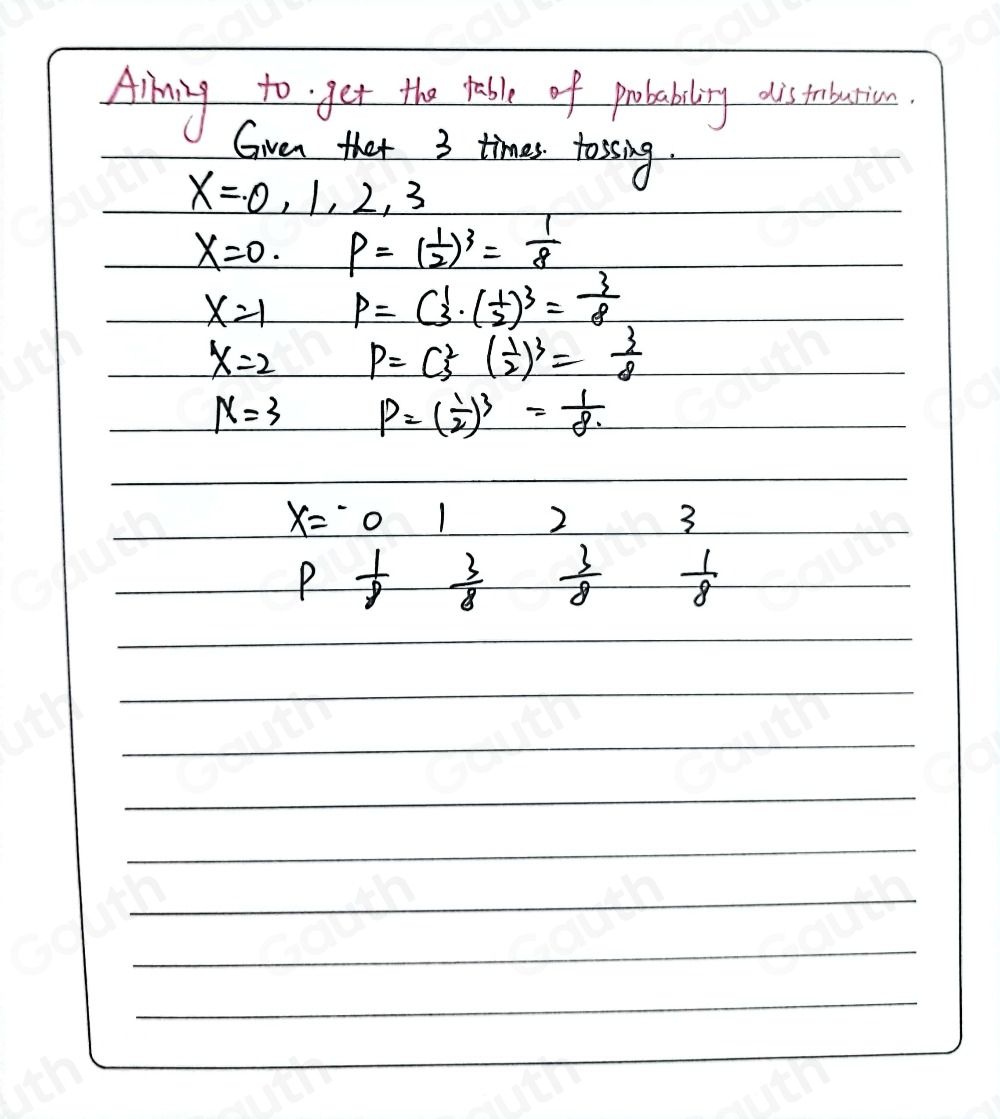 Aiming to get the table of probability distribution.
Given that 3 times tossing.
X=0, 1, 2, 3
X=0. P = (1/2)³ = 1/8
X=1 P = C₃¹·(1/2)³ = 3/8
X=2 P = C₃² (1/2)³ = 3/8
X=3 P = (1/2)³ = 1/8.
X= 0 1 2 3
P 1/8 3/8 3/8 1/8